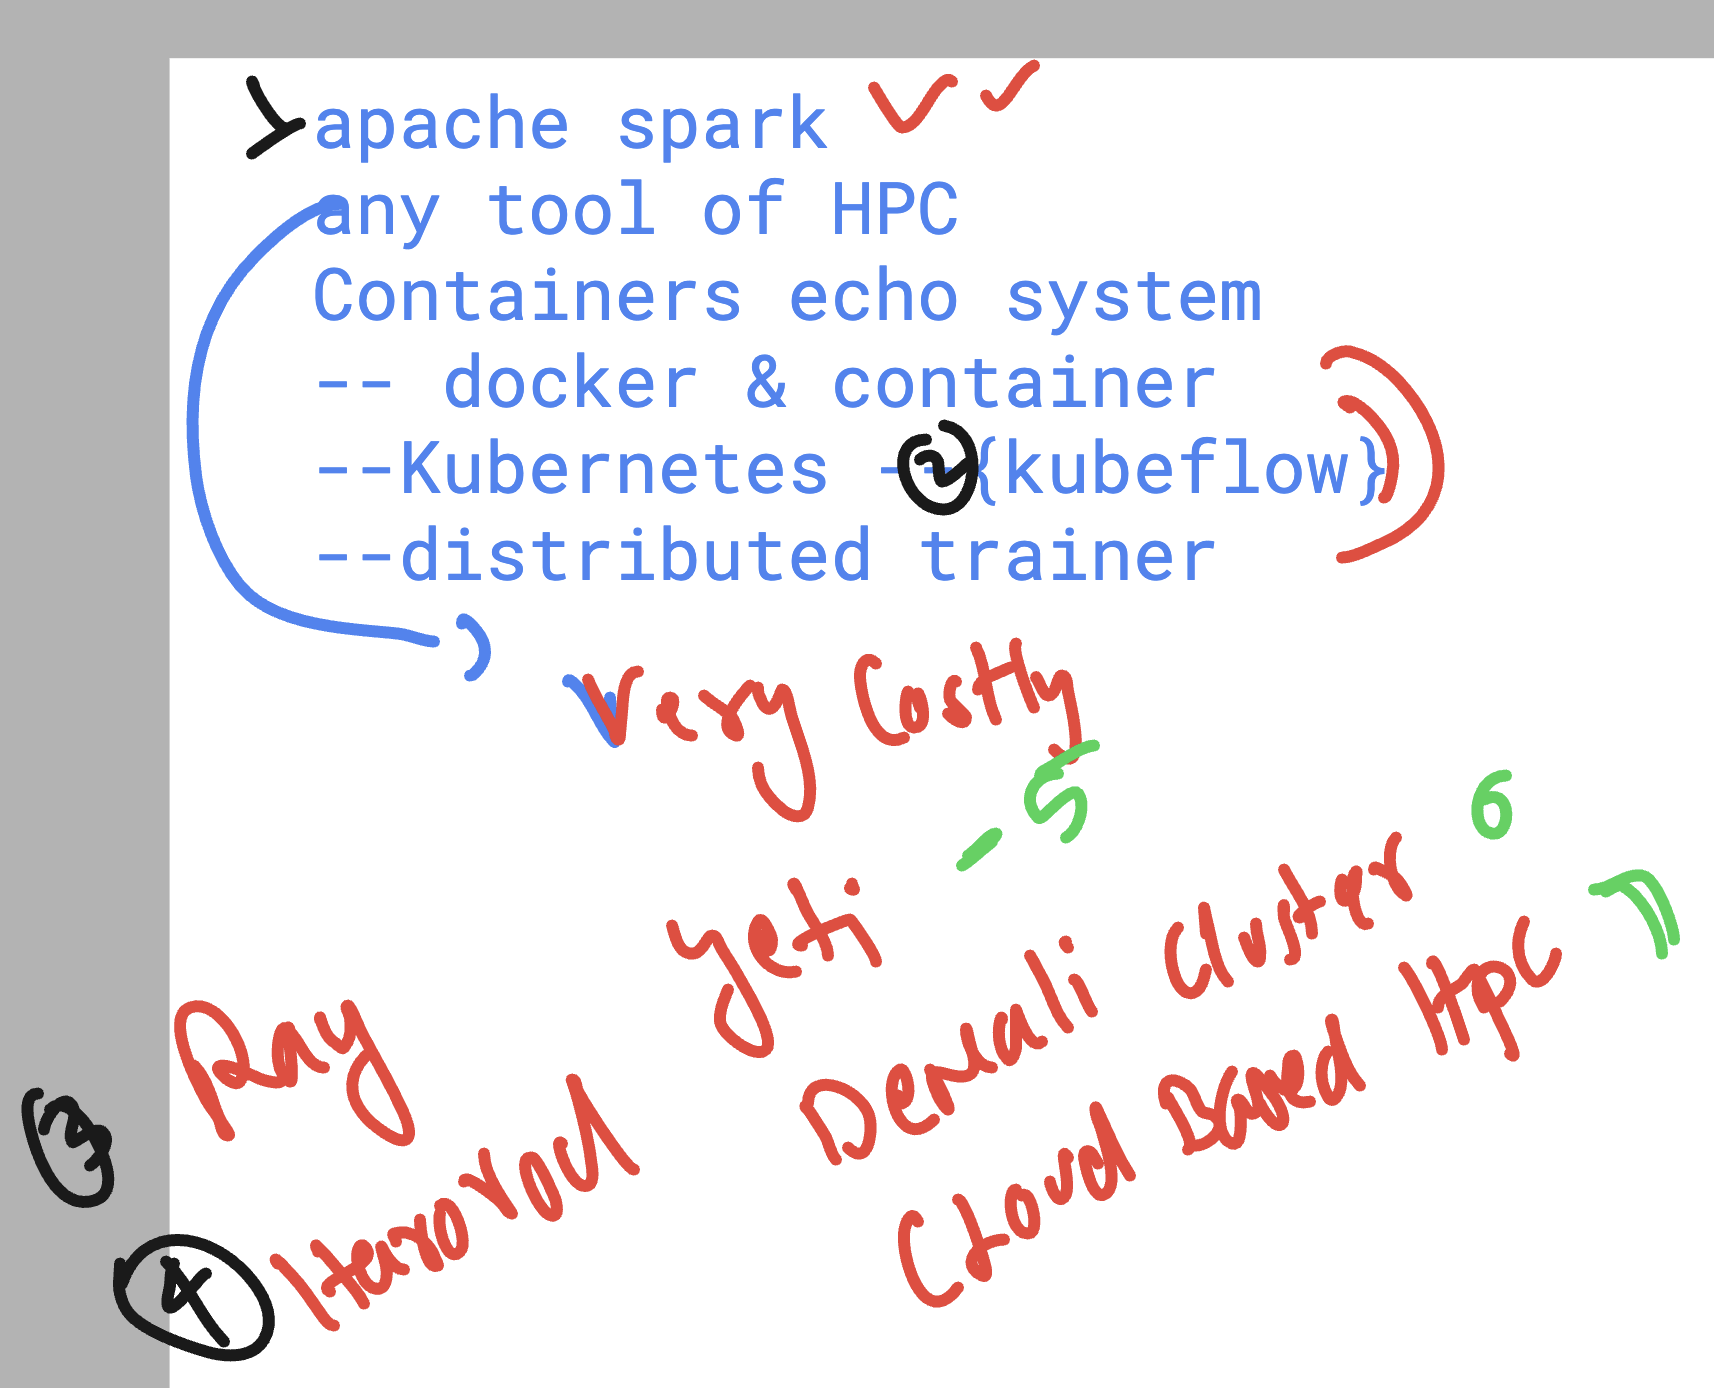 apache spark
any tool of HPC
Containers echo system
-- docker & container
--Kubernetes -- 2 {kubeflow}
--distributed trainer
Very Costly
yeti - 5
Denali Cluster 6
Cloud Based HpC 7
3 Ray
4 Horovod